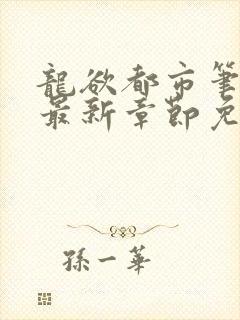 龍欲都市筆
最新章節免
孫一華